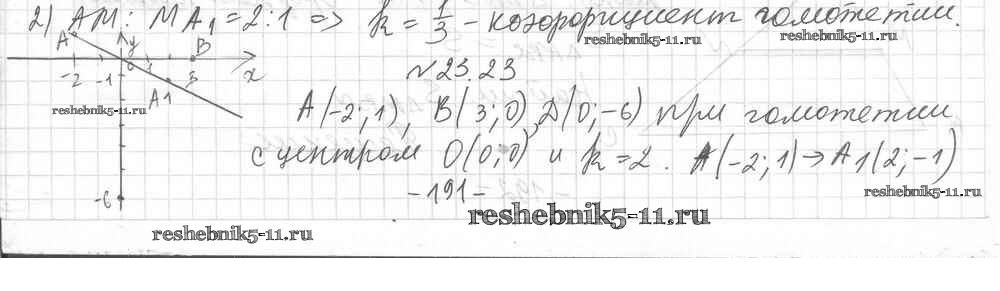 2) AM : MA₁ = 2 : 1 => k = 1/3 - коэффициент гомотетии.
reshebnik5-11.ru
A y B
0 1
-2 -1 3 x
A1
N 23.23
reshebnik5-11.ru
A(-2; 1), B(3; 0), D(0; -6) при гомотетии
с центром O(0; 0) и k = 2. A(-2; 1) → A₁(2; -1)
-6
-191-
reshebnik5-11.ru
reshebnik5-11.ru
reshebnik5-11.ru